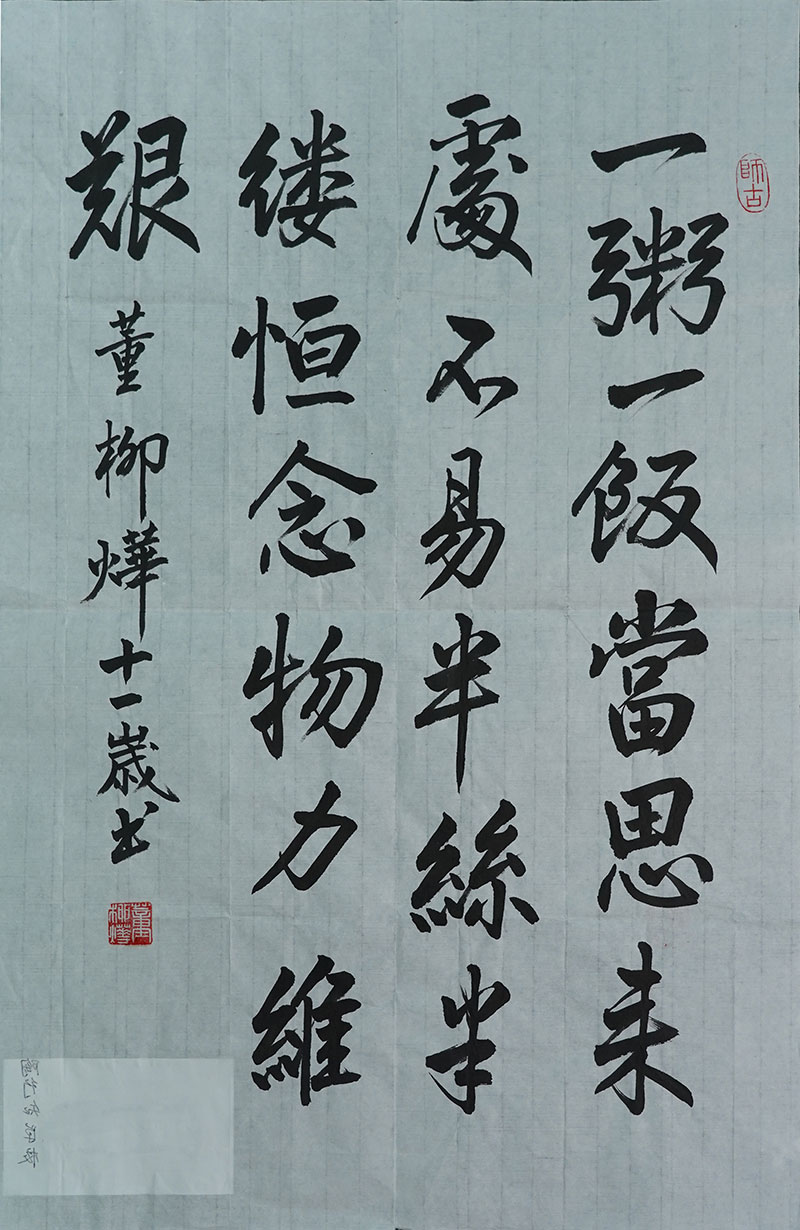 師古
一粥一飯當思来
處不易半絲半
缕恒念物力維
艱
董柳燁十一歲书
董柳燁